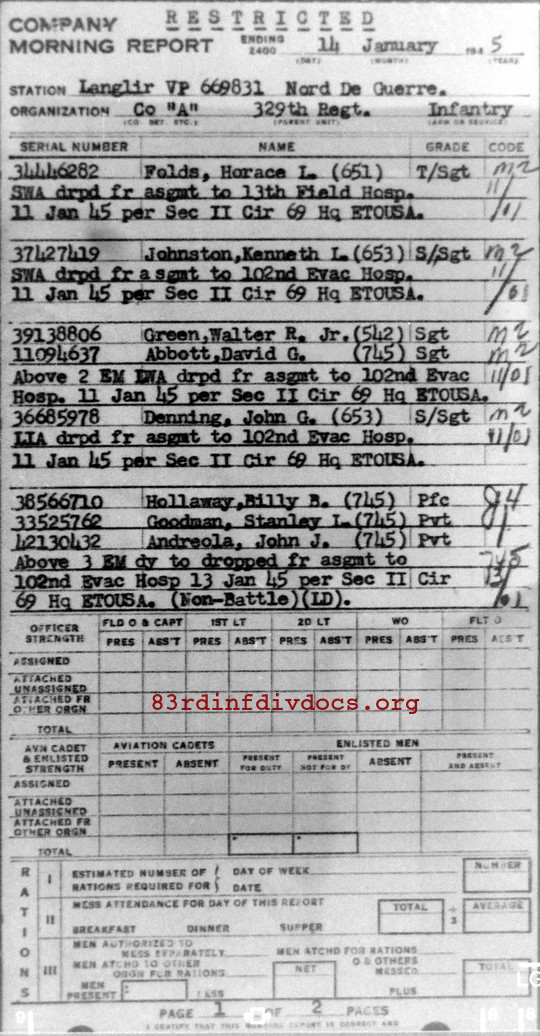 RESTRICTED
COMPANY
MORNING REPORT ENDING 2400 14 January 1945
(DAY) (MONTH) (YEAR)
STATION Langlir VP 669831 Nord De Guerre.
ORGANIZATION Co "A" 329th Regt. Infantry
(CO. DET. ETC.) (PARENT UNIT) (ARM OR SERVICE)
SERIAL NUMBER NAME GRADE CODE
34446282 Folds, Horace L. (651) T/Sgt M2
SWA drpd fr asgmt to 13th Field Hosp. 11/
11 Jan 45 per Sec II Cir 69 Hq ETOUSA. /01
37427419 Johnston,Kenneth L.(653) S/Sgt M2
SWA drpd fr asgmt to 102nd Evac Hosp. 11/
11 Jan 45 per Sec II Cir 69 Hq ETOUSA. /01
39138806 Green,Walter R. Jr.(542) Sgt M2
11094637 Abbott,David G. (745) Sgt M2
Above 2 EM LWA drpd fr asgmt to 102nd Evac 11/01
Hosp. 11 Jan 45 per Sec II Cir 69 Hq ETOUSA.
36685978 Denning, John G. (653) S/Sgt M2
LIA drpd fr asgmt to 102nd Evac Hosp. 11/01
11 Jan 45 per Sec II Cir 69 Hq ETOUSA.
38566710 Hollaway,Billy B. (745) Pfc
33525762 Goodman, Stanley L.(745) Pvt
42130432 Andreola, John J. (745) Pvt
Above 3 EM dy to dropped fr asgmt to
102nd Evac Hosp 13 Jan 45 per Sec II Cir 13/
69 Hq ETOUSA. (Non-Battle)(LD). /01
OFFICER STRENGTH FLD O & CAPT 1ST LT 2D LT WO FLT O
PRES ABS'T PRES ABS'T PRES ABS'T PRES ABS'T PRES ABS'T
ASSIGNED
ATTACHED UNASSIGNED
ATTACHED FR OTHER ORGN
83rdinfdivdocs.org
TOTAL
AVN CADET & ENLISTED STRENGTH AVIATION CADETS ENLISTED MEN
PRESENT ABSENT PRESENT FOR DUTY PRESENT NOT FOR DY ABSENT PRESENT AND ABSENT
ASSIGNED
ATTACHED UNASSIGNED
ATTACHED FR OTHER ORGN
TOTAL
RATIONS
I ESTIMATED NUMBER OF RATIONS REQUIRED FOR DAY OF WEEK DATE NUMBER
II MESS ATTENDANCE FOR DAY OF THIS REPORT TOTAL ÷ 3 AVERAGE
BREAKFAST DINNER SUPPER
III MEN AUTHORIZED TO MESS SEPARATELY MEN ATCHD FOR RATIONS
MEN ATCHD TO OTHER ORGN FOR RATIONS NET O & OTHERS MESSED TOTAL
MEN PRESENT LESS PLUS
PAGE 1 OF 2 PAGES
I CERTIFY THAT THIS MORNING REPORT IS CORRECT AND